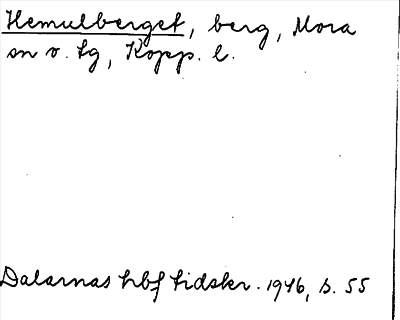 Hemulberget, berg, Mora
sn o. tg, Kopp. l.
Dalarnas hbf tidskr. 1946, s. 55